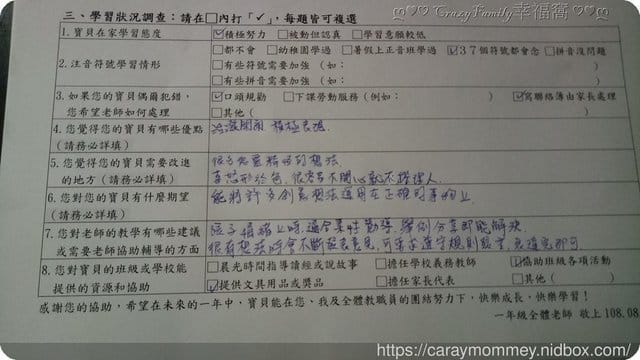 ღ♡ღ CrazyFamily幸福窩 ღ♡ღ
三、學習狀況調查：請在□內打「✓」，每題皆可複選
1.寶貝在家學習態度 ☑積極努力 □被動但認真 □學習意願較低
2.注音符號學習情形 □都不會 □幼稚園學過 □暑假上正音班學過 ☑37個符號都會念 □拼音沒問題
□有些符號需要加強（如： ）
□有些拼音需要加強（如： ）
3.如果您的寶貝偶爾犯錯，您希望老師如何處理 ☑口頭規勸 □下課勞動服務（例如： ） ☑寫聯絡簿由家長處理
□其他（ ）
4.您覺得您的寶貝有哪些優點(請務必詳填) 活潑開朗 積極表現.
5.您覺得您的寶貝需要改進的地方(請務必詳填) 很多
喜怒形於色，很容易不開心就不理人.
6.您對您的寶貝有什麼期望(請務必詳填) 能將許多創意想法運用在正確的事物上.
7.您對老師的教學有哪些建議或需要老師協助輔導的方面 孩子情緒上時，適合柔性勸導，舉例分享即能解決.
很有想法時會不斷發表意見，可要求遵守規則發言，
8.您對寶貝的班級或學校能提供的資源和協助 □晨光時間指導讀經或說故事 □擔任學校義務教師 ☑協助班級各項活動
☑提供文具用品或獎品 □擔任家長代表 □其他（ ）
感謝您的協助，希望在未來的一年中，寶貝能在您、我及全體教職員的團結努力下，快樂成長，快樂學習！
一年級全體老師 敬上 108.08
https://caraymommey.nidbox.com/